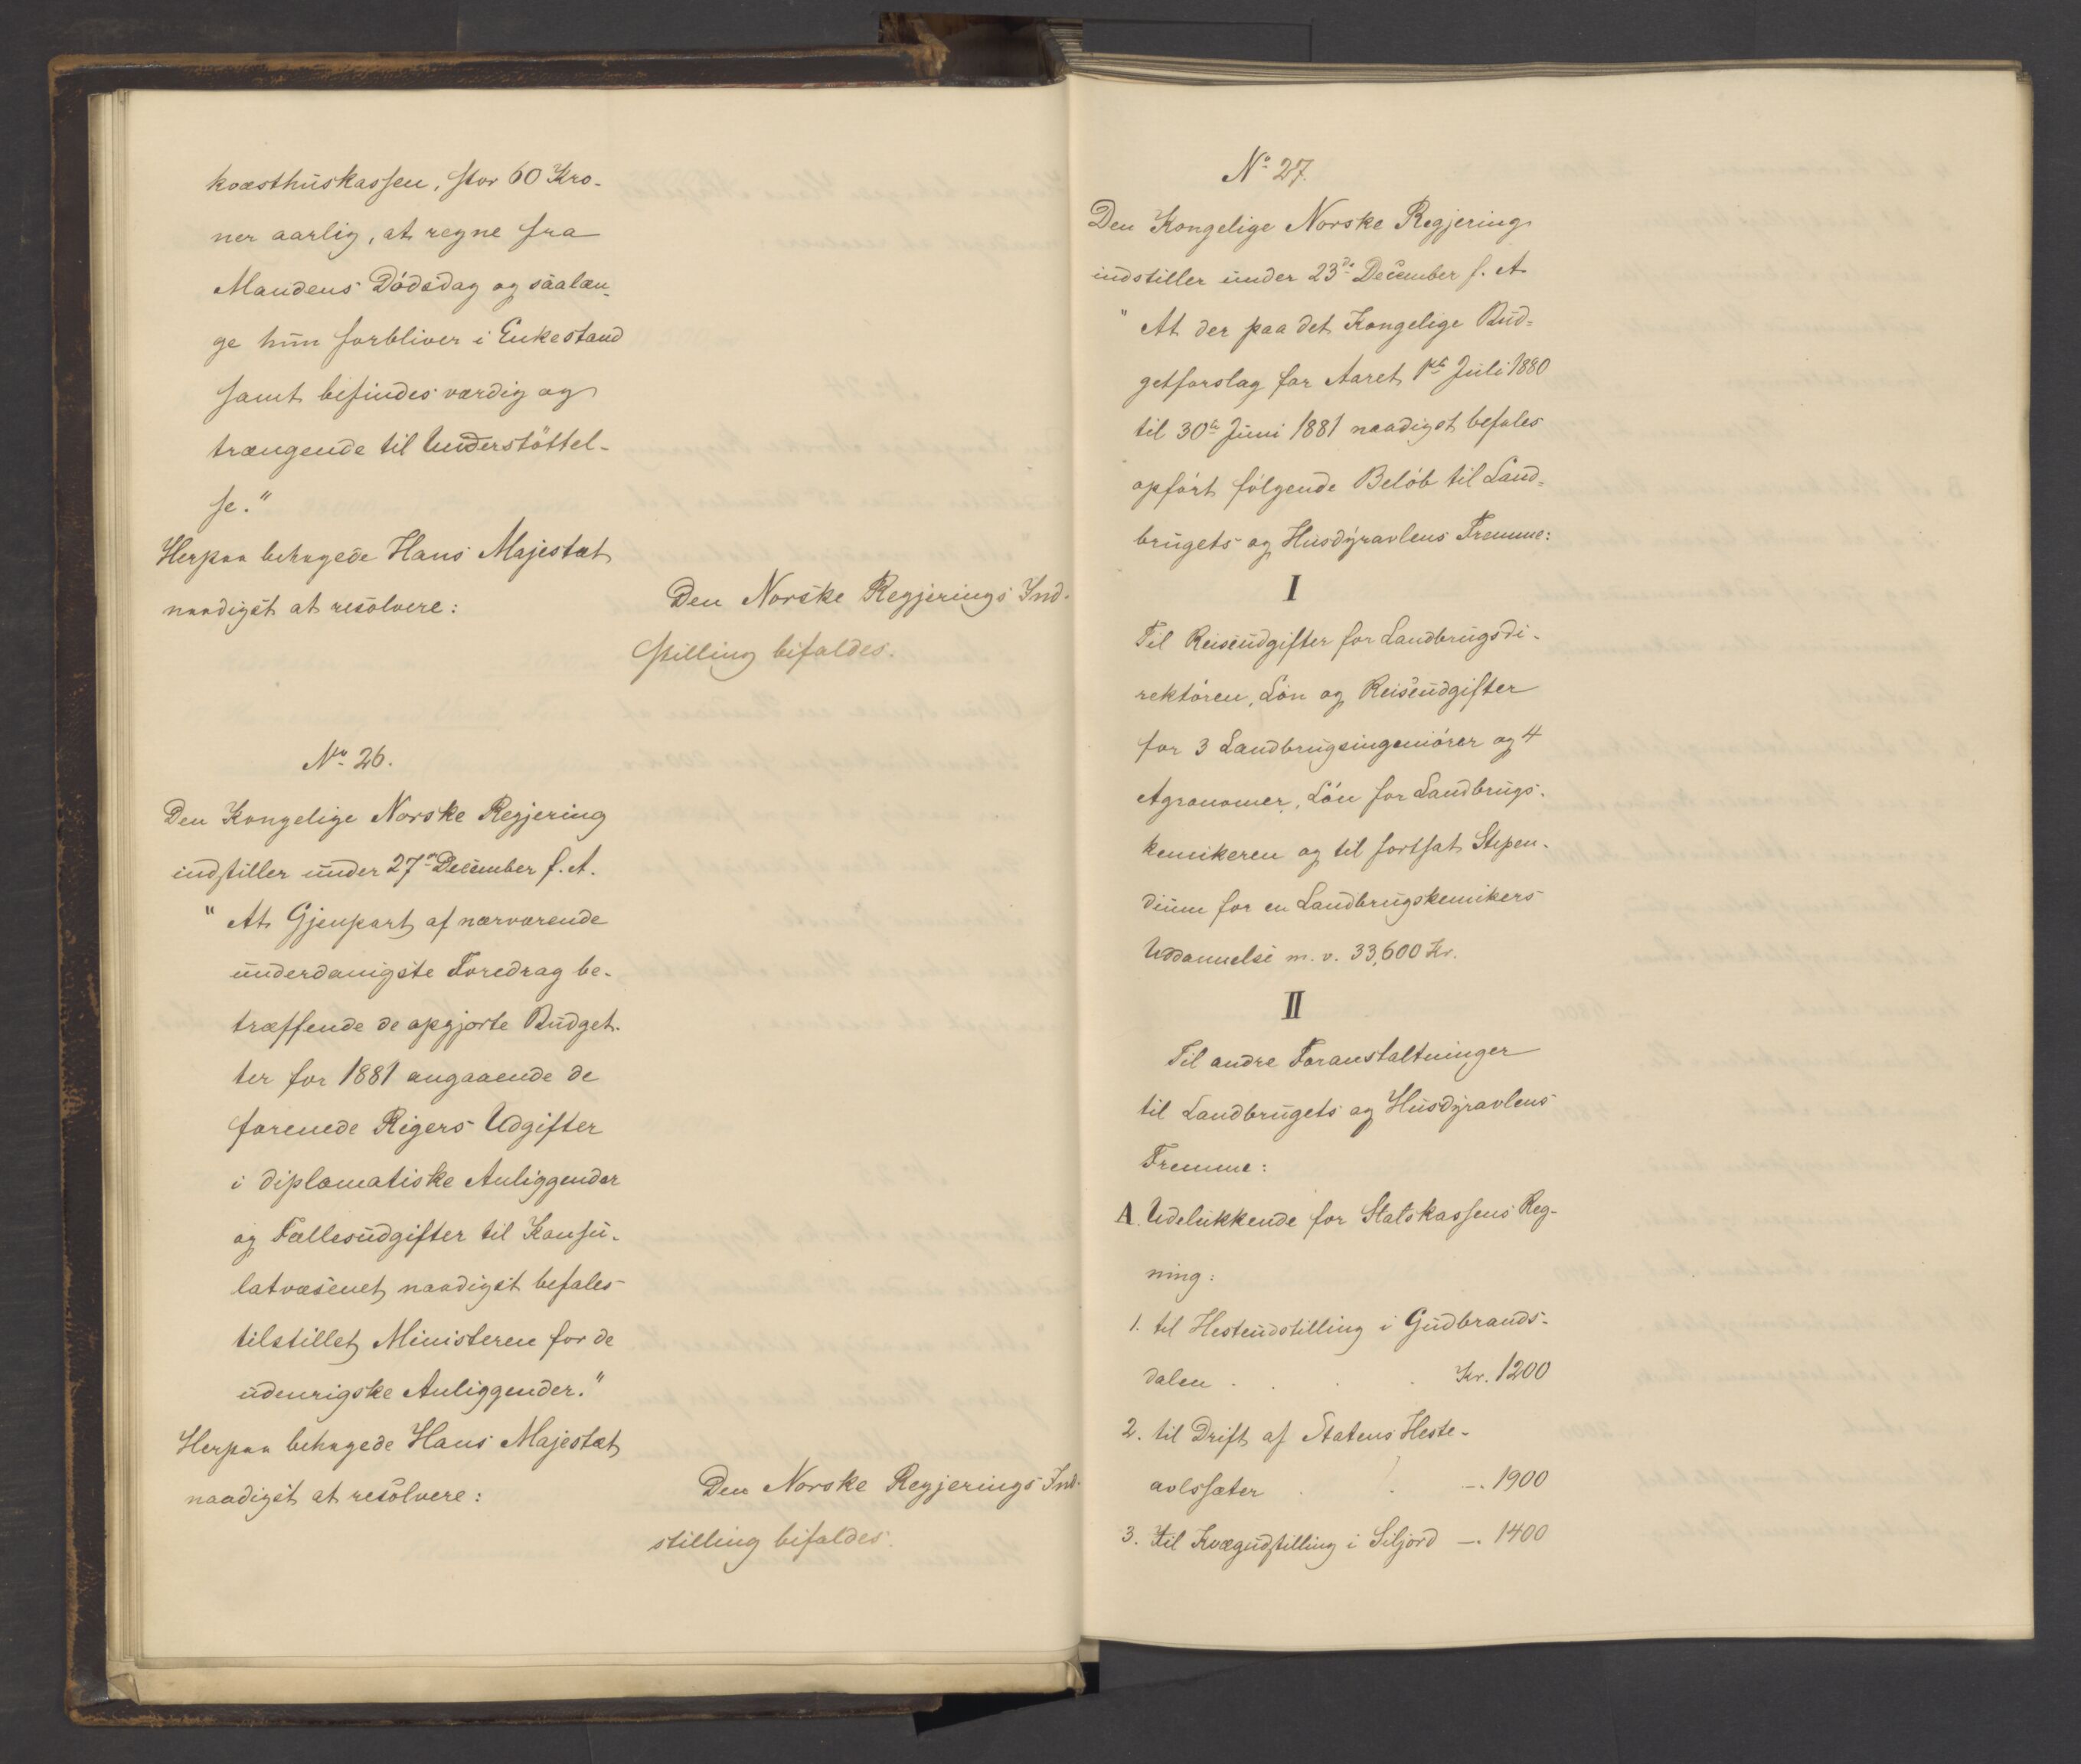 kvæsthuskassen, stor 60 Kro-
ner aarlig, at regne fra
Mandens Dödsdag og saalæn-
ge hun forbliver i Enkestand
samt befindes værdig og
trængende til Understöttel-
se."
Herpaa behagede Hans Majestæt
naadigst at resolvere:
Den Norske Regjerings Ind-
stilling bifaldes.
No 26.
Den Kongelige Norske Regjering
indstiller under 27de December f. A.
"At Gjenpart af nærværende
underdanigste Foredrag be-
træffende de opgjorte Budget-
ter for 1881 angaaende de
forenede Rigers Udgifter
i diplomatiske Anliggender
og Fællesudgifter til Konsu-
latvæsenet naadigst befales
tilstillet Ministeren for de
udenrigske Anliggender."
Herpaa behagede Hans Majestæt
naadigst at resolvere:
Den Norske Regjerings Ind-
stilling bifaldes.
No 27.
Den Kongelige Norske Regjering
indstiller under 23de December f. A.
"At der paa det Kongelige Bud-
getforslag for Aaret 1ste Juli 1880
til 30te Juni 1881 naadigst befales
opfört fölgende Belöb til Land-
brugets og Husdyravlens Fremme:
I
Til Reiseudgifter for Landbrugsdi-
rektören, Lön og Reiseudgifter
for 3 Landbrugsingeniörer og 4
Agronomer, Lön for Landbrugs-
kemikeren og til fortsat Stipen-
dium for en Landbrugskemikers
Uddannelse m. v. 33,600 Kr.
II
Til andre Foranstaltninger
til Landbrugets og Husdyravlens
Fremme:
A. Udelukkende for Statskassens Reg-
ning:
1. til Hesteudstilling i Gudbrands-
dalen . . . Kr. 1200
2. til Drift af Statens Heste-
avlssæter . . -. 1900
3. til Kvægudstilling i Siljord -. 1400